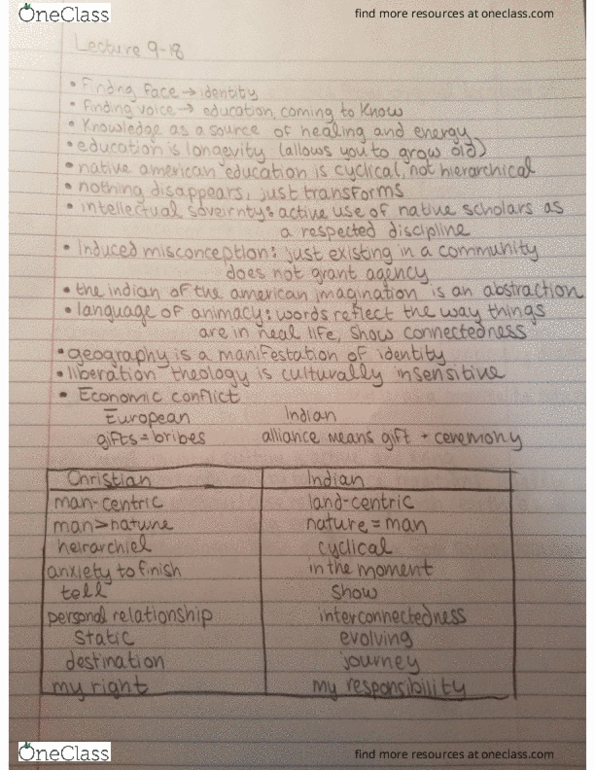 OneClass
find more resources at oneclass.com
Lecture 9-18
• Finding face → identity
• finding voice → education, coming to know
• Knowledge as a source of healing and energy
• education is longevity (allows you to grow old)
• native american education is cyclical, not hierarchical
• nothing disappears, just transforms
• intellectual soveirnty: active use of native scholars as
a respected discipline
• Induced misconception: just existing in a community
does not grant agency
• the indian of the american imagination is an abstraction
• language of animacy: words reflect the way things
are in real life, show connectedness
• geography is a manifestation of identity
• liberation theology is culturally insensitive
• Economic conflict
European Indian
gifts = bribes alliance means gift + ceremony
Christian Indian
man-centric land-centric
man > nature nature = man
heirarchiel cyclical
anxiety to finish in the moment
tell show
personal relationship interconnectedness
static evolving
destination journey
my right my responsibility
OneClass
find more resources at oneclass.com